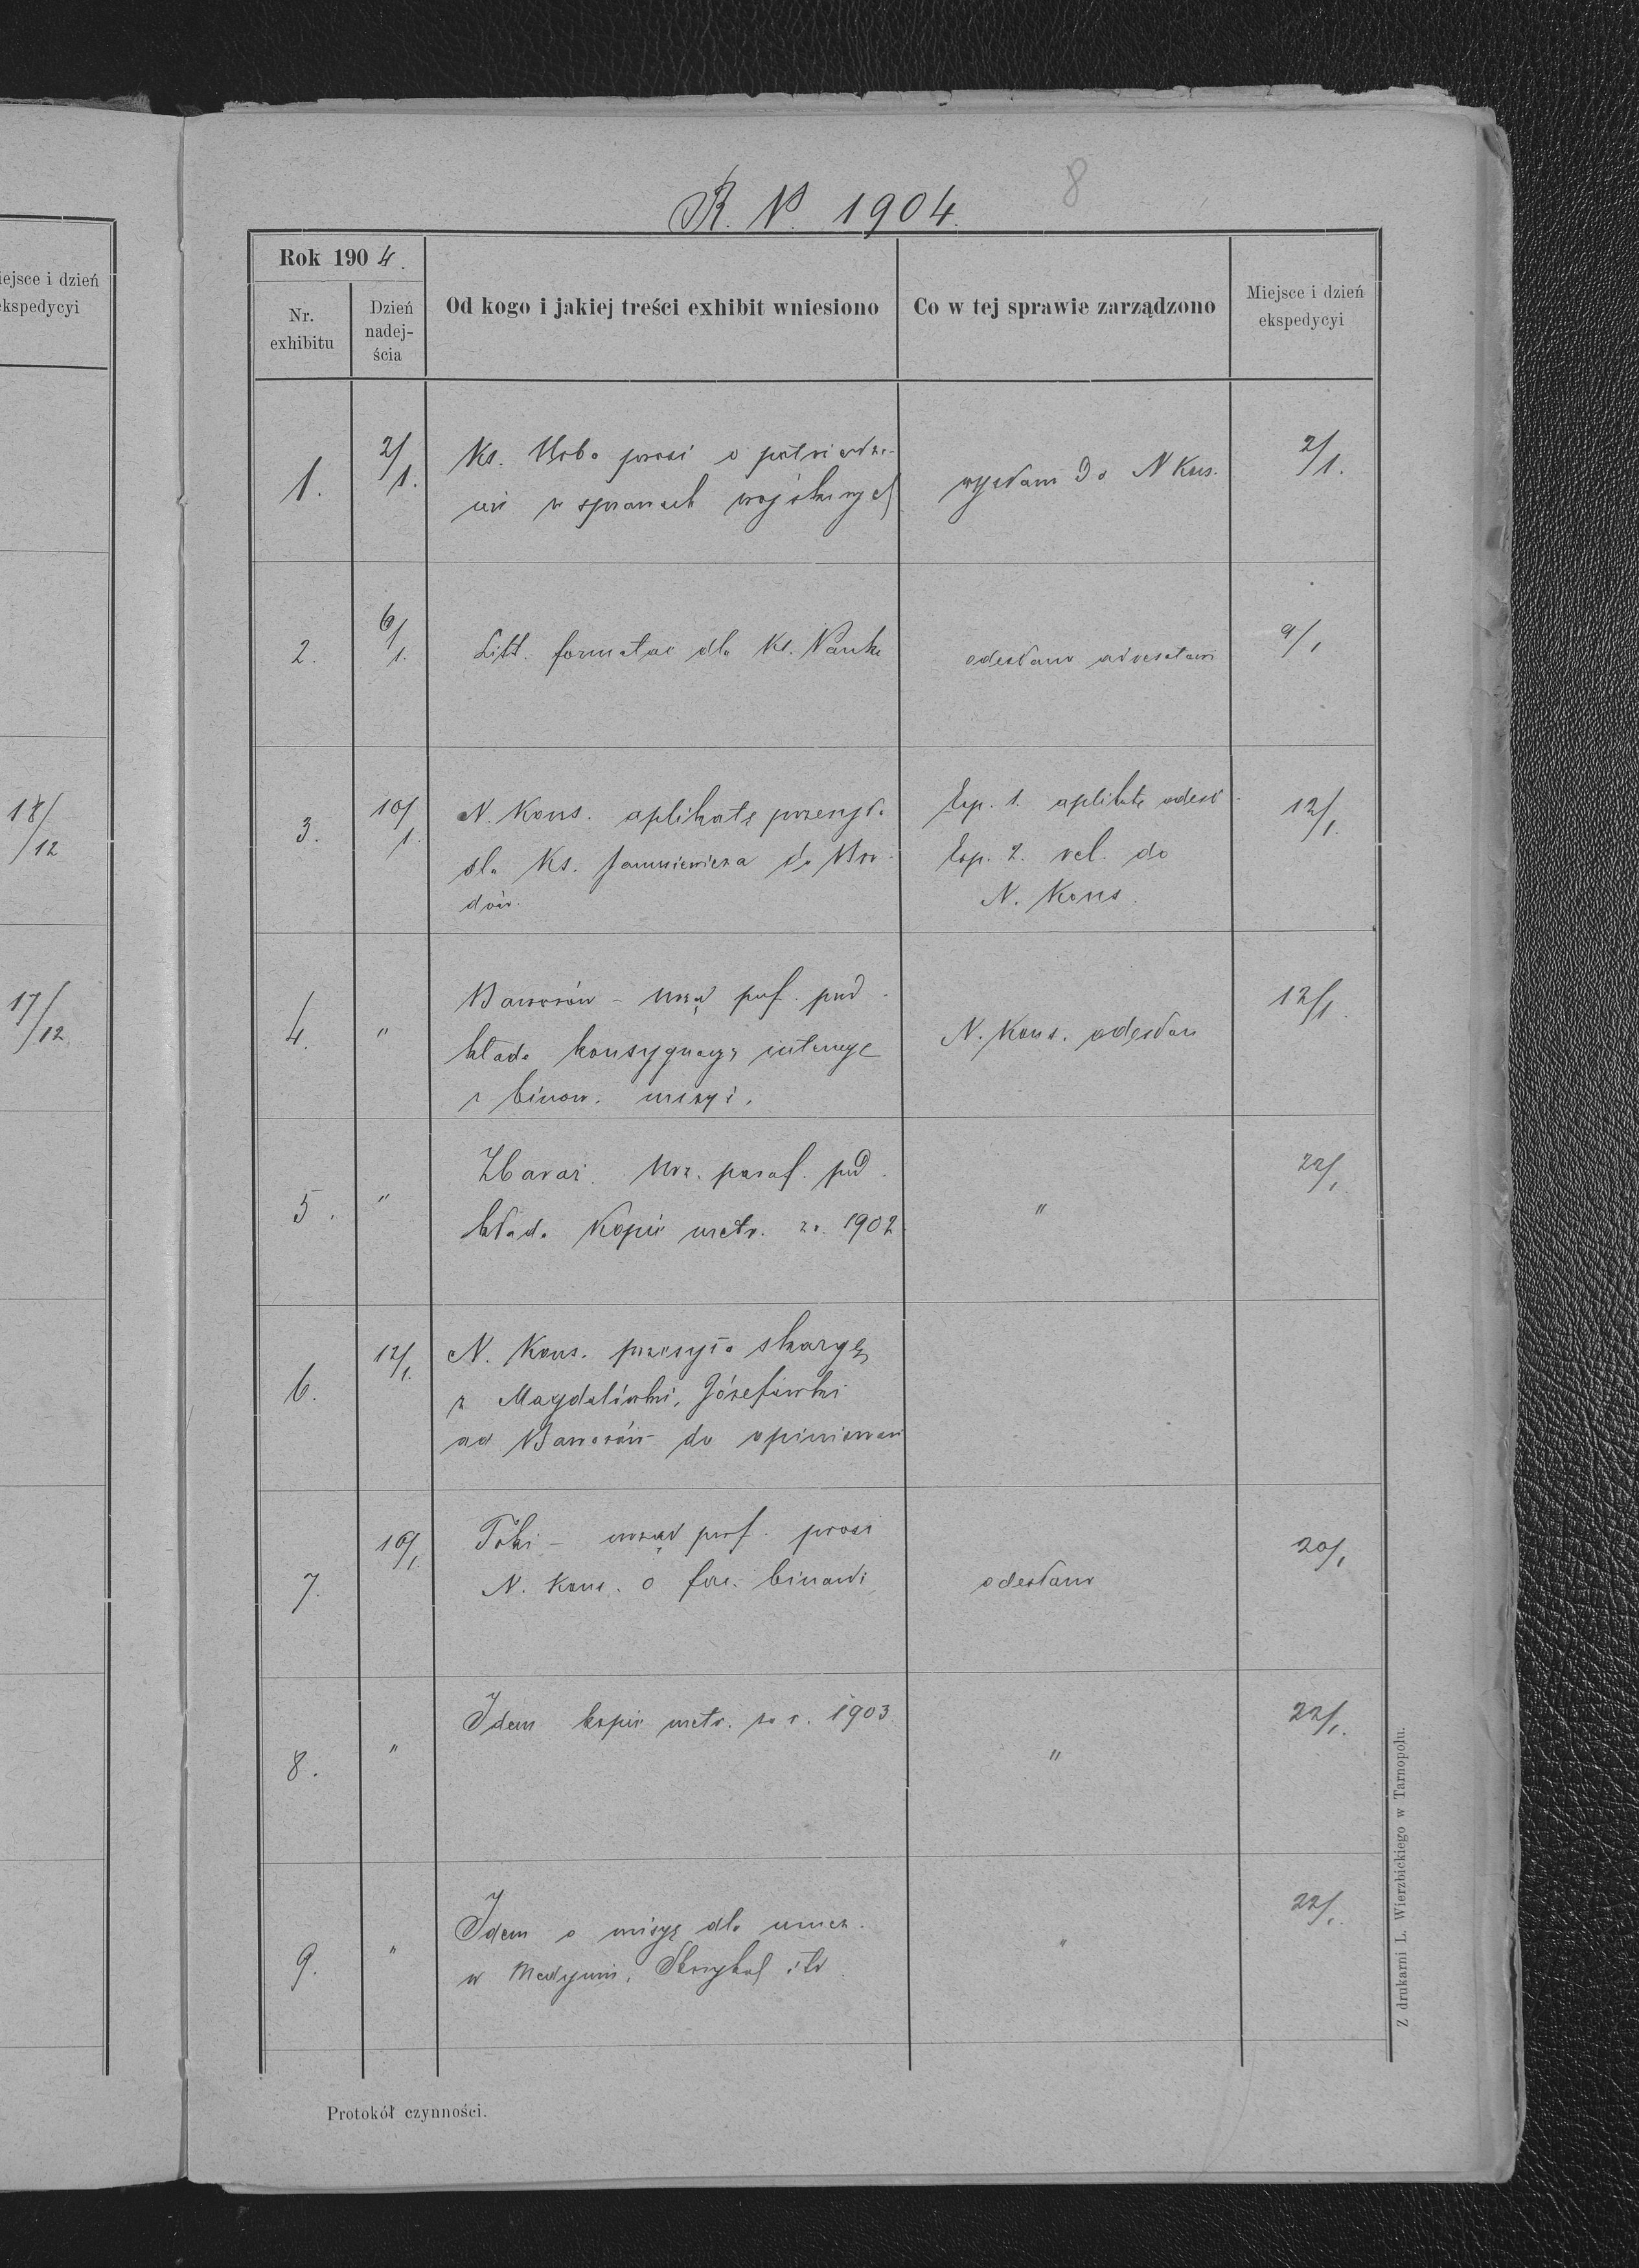 iejsce i dzień
kspedycyi
18/12
17/12
8
R. P. 1904.
Rok 1904.
Nr. exhibitu
Dzień nadejścia
Od kogo i jakiej treści exhibit wniesiono
Co w tej sprawie zarządzono
Miejsce i dzień ekspedycyi
1.
2/1.
Ks. prosi o potwierdze-
nie w sprawach wojskowych
do N Kons.
2/1.
2.
6/1.
Litt. formatae dla Ks.
odesłano adresatowi
9/1
3.
10/1
N. Kons. aplikatę przesyła
dla Ks. do Bro-
dów.
Exp. 1. aplikatę odesł.
Exp. 2. rel. do
N. Kons.
12/1.
4.
"
Baworów – urząd paf. przed-
kłada konsygnacyę intencyj
z binow. mszy ś.
N. Kons. odesłan
12/1.
5.
"
Zbaraż. Urz. paraf. przed-
kłada Kopie metr. za 1902
"
22/1.
6.
12/1.
N. Kons. przesyła skargę
z Magdalówki, Józefówki
ad Baworów do opiniowan
7.
19/1.
Toki – urząd prf. prosi
N. Kons. o fac. binandi
odesłano
20/1
8.
"
Idem kopie metr. za r. 1903
"
22/1.
9.
"
Idem o misyę dla
w Medynii, itd.
"
22/1.
Protokół czynności.
Z drukarni L. Wierzbickiego w Tarnopolu.